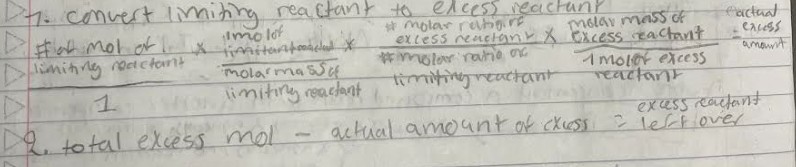 1. convert limiting reactant to excess reactant
# of mol of limiting reactant / 1 × 1 mol of limitant / molar mass of limiting reactant × # molar ratio of excess reactant / # molar ratio of limiting reactant × molar mass of excess reactant / 1 mol of excess reactant = actual excess amount
2. total excess mol - actual amount of excess = excess reactant left over